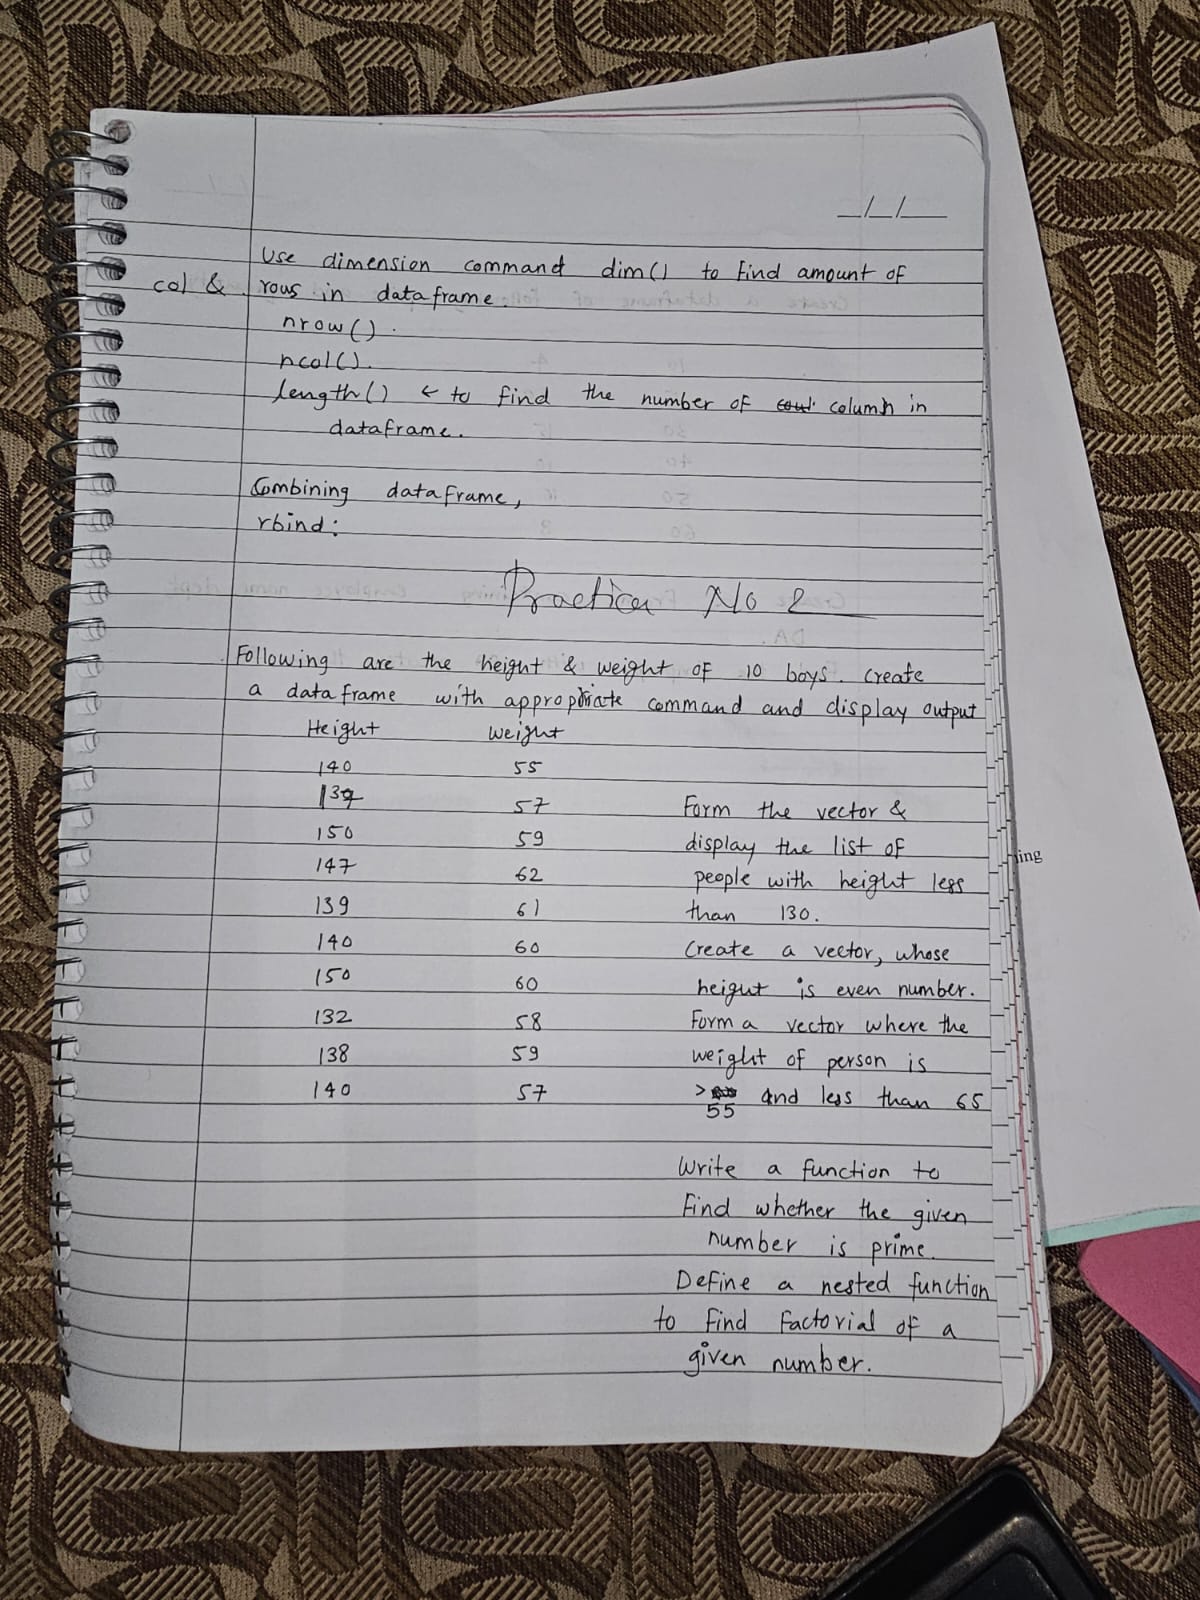 _/_/__
Use dimension command dim() to find amount of
col & rows in dataframe.
nrow().
ncol().
length() ← to find the number of column in
dataframe.
Combining dataframe,
rbind:
Practical No 2
Following are the height & weight of 10 boys. Create
a dataframe with appropriate command and display output
Height Weight
140 55
57 Form the vector &
150 59 display the list of
147 62 people with height less
139 61 than 130.
140 60 Create a vector, whose
150 60 height is even number.
132 58 Form a vector where the
138 59 weight of person is
140 57 > 55 and less than 65
Write a function to
find whether the given
number is prime.
Define a nested function
to find factorial of a
given number.
ing